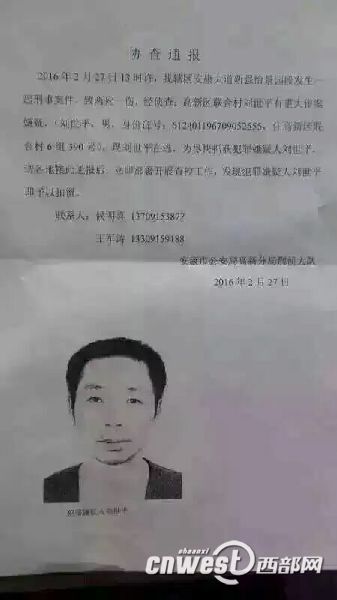 协查通报
2016年2月27日13时许，我辖区安康大道新盛怡景园段发生一
起刑事案件，致两死一伤，经侦查，高新区联合村刘世平有重大作案
嫌疑，（刘世平，男，身份证号：612401196709052555，住高新区联
合村6组390号），现刘世平在逃，为尽快抓获犯罪嫌疑人刘世平
请各地接此通报后，立即部署开展查控工作，发现犯罪嫌疑人刘世平
即予以扣留。
联系人：侯 13709153877
王军涛 13309159188
安康市公安局高新分局刑侦大队
2016年2月27日
犯罪嫌疑人刘世平
shaanxi
cnwest西部网